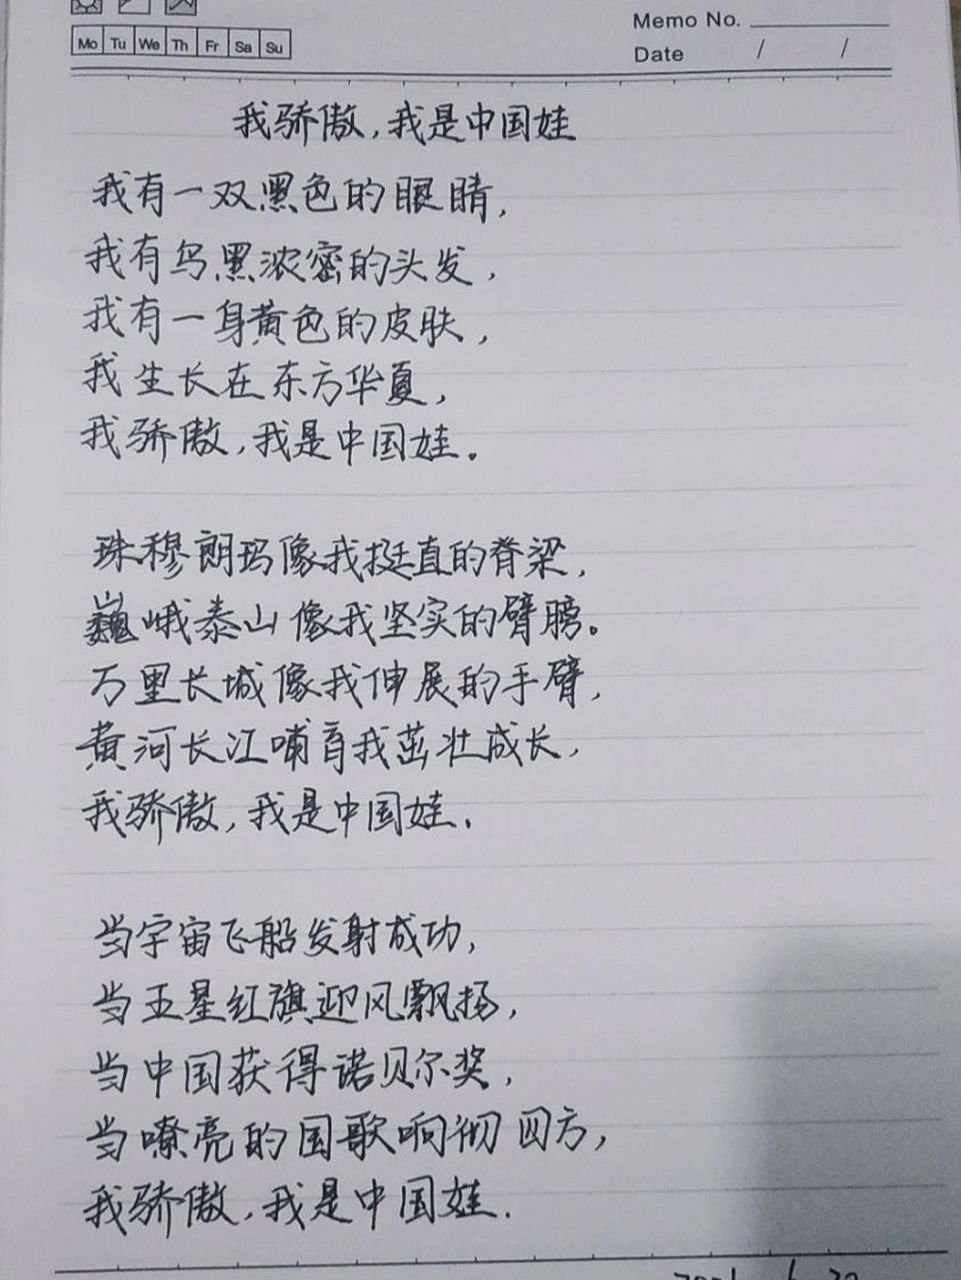 Mo Tu We Th Fr Sa Su
Memo No.
Date / /
我骄傲,我是中国娃
我有一双黑色的眼睛,
我有乌黑浓密的头发,
我有一身黄色的皮肤,
我生长在东方华夏,
我骄傲,我是中国娃。
珠穆朗玛像我挺直的脊梁,
巍峨泰山像我坚实的臂膀。
万里长城像我伸展的手臂,
黄河长江哺育我茁壮成长,
我骄傲,我是中国娃.
当宇宙飞船发射成功,
当五星红旗迎风飘扬,
当中国获得诺贝尔奖,
当嘹亮的国歌响彻四方,
我骄傲,我是中国娃.